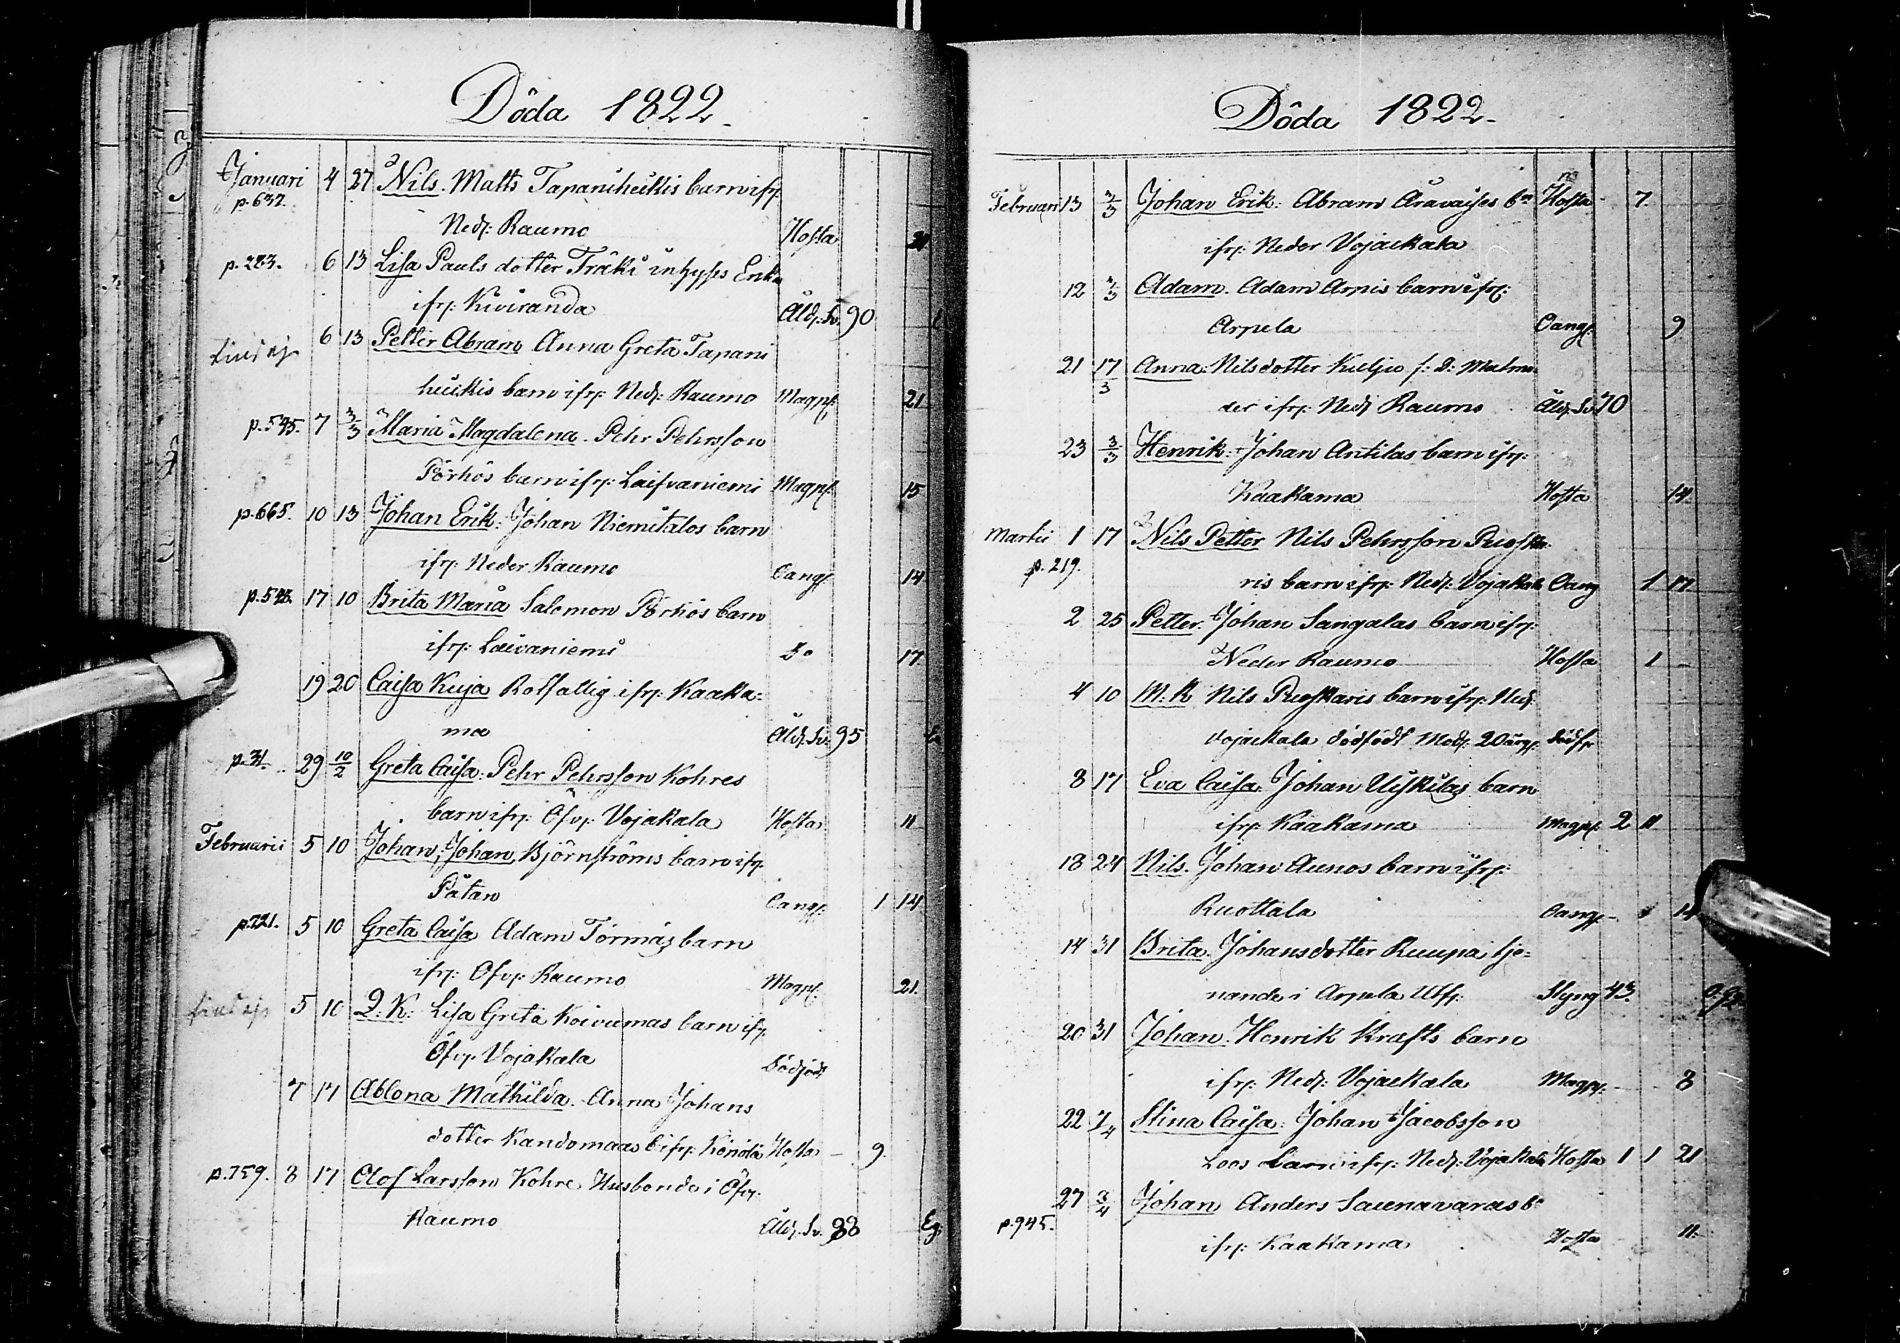 Döda 1822.
Januari 4 27 Nils. Matts Tapaniheikis barn ifr:
p. 637.
Ned: Raumo Hosta 21
p. 283. 6 13 Lisa Pauls dotter Träki inhyses Enka
ifr: Kiviranda Åld: Sv: 90
6 13 Petter Abram Anna Greta Tapani
heikis barn ifr: Ned: Raumo Magpl: 21
p. 545. 7 3/3 Maria Magdalena. Pehr Pehrsson
Pörhös barn ifr: Laifvaniemi Magpl: 15
p. 665. 10 13 Johan Erik: Johan Niemitalos barn
ifr: Neder Raumo Oangf: 14
p. 543. 17 10 Brita Maria Salomon Pörhös barn
ifr: Laivaniemi Do 17
19 20 Caisa Kuja Rotfattig ifr: Kaaka:
ma Åld: Sv: 95
p. 31. 29 10/2 Greta Caisa: Pehr Pehrsson Kohres
barn ifr: Öfv: Vojakala Hosta 11
Februarii 5 10 Johan, Johan Björnströms barn ifr:
Påtan Oangf: 1 14
p. 721. 5 10 Greta Caisa Adam Törmäs barn
ifr: Öfv: Raumo Magpl: 21.
5 10 D. K: Lisa Greta Koivumas barn ifr:
Öfv: Vojakala Dödfödt
7 17 Ablona Mathilda. Anna Johans
dotter Kandomaas b ifr: Könölä Hosta – 9.
p. 759. 8 17 Olof Larsson Kohre Husbonde i Öfv:
Raumo Åld: Sv. 88 Eg.
Döda 1822.
Februari 13 3/3 Johan Erik: Abram Aravaises bn Hosta 7
ifr: Neder Vojackala
12 3/3 Adam. Adam Arpis barn ifr:
Arpela Oangf: 9
21 17/3 Anna: Nilsdotter Kieljio
der ifr: Ned: Raumo Åld: Sv: 70
23 3/3 Henrik: Johan Antilas barn ifr:
Kaakama Hosta 14.
Martii 1 17 Nils Petter Nils Pehrsson Ruoska
p. 219.
ris barn ifr: Ned: Vojakala Oang 1 17
2 25 Petter. Johan Sangalas barn ifr:
Neder Raumo Hosta 1 –
4 10 M. K Nils Ruoskaris barn ifr: Ned:
Vojackala dödfödt Mod: 20 årg: dödf:
8 17 Eva Caisa: Johan Uiskilas barn
ifr: Kaakama Magpl: 2 11
18 24 Nils. Johan Aunos barn ifr:
Ruottala Oangf – 14
14 31 Brita. Johansdotter Ruupa, tje:
nande i Arpela Utf: Styng 43.
20 31 Johan. Henrik Krafts barn
ifr: Ned: Vojackala Magpl: 8
22 7/4 Stina Caisa: Johan Jacobsson
Loos barn ifr: Ned: Vojakala Hosta 1 1 21
27 3/4 Johan Anders Saunavaras b:
p. 945.
ifr: Kaakama Hosta 11.